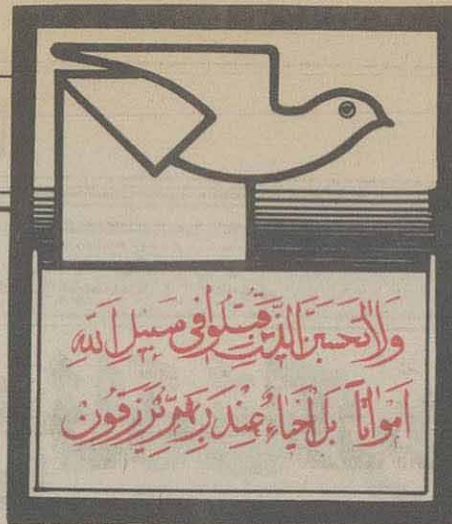 وَلَا تَحسَبَنَّ الَّذِينَ قُتِلُوا فِى سَبِيلِ اللهِ
اَمْوَاتًا بَلْ اَحْيَاءٌ عِنْدَ رَبِّهِمْ يُرْزَقُونَ